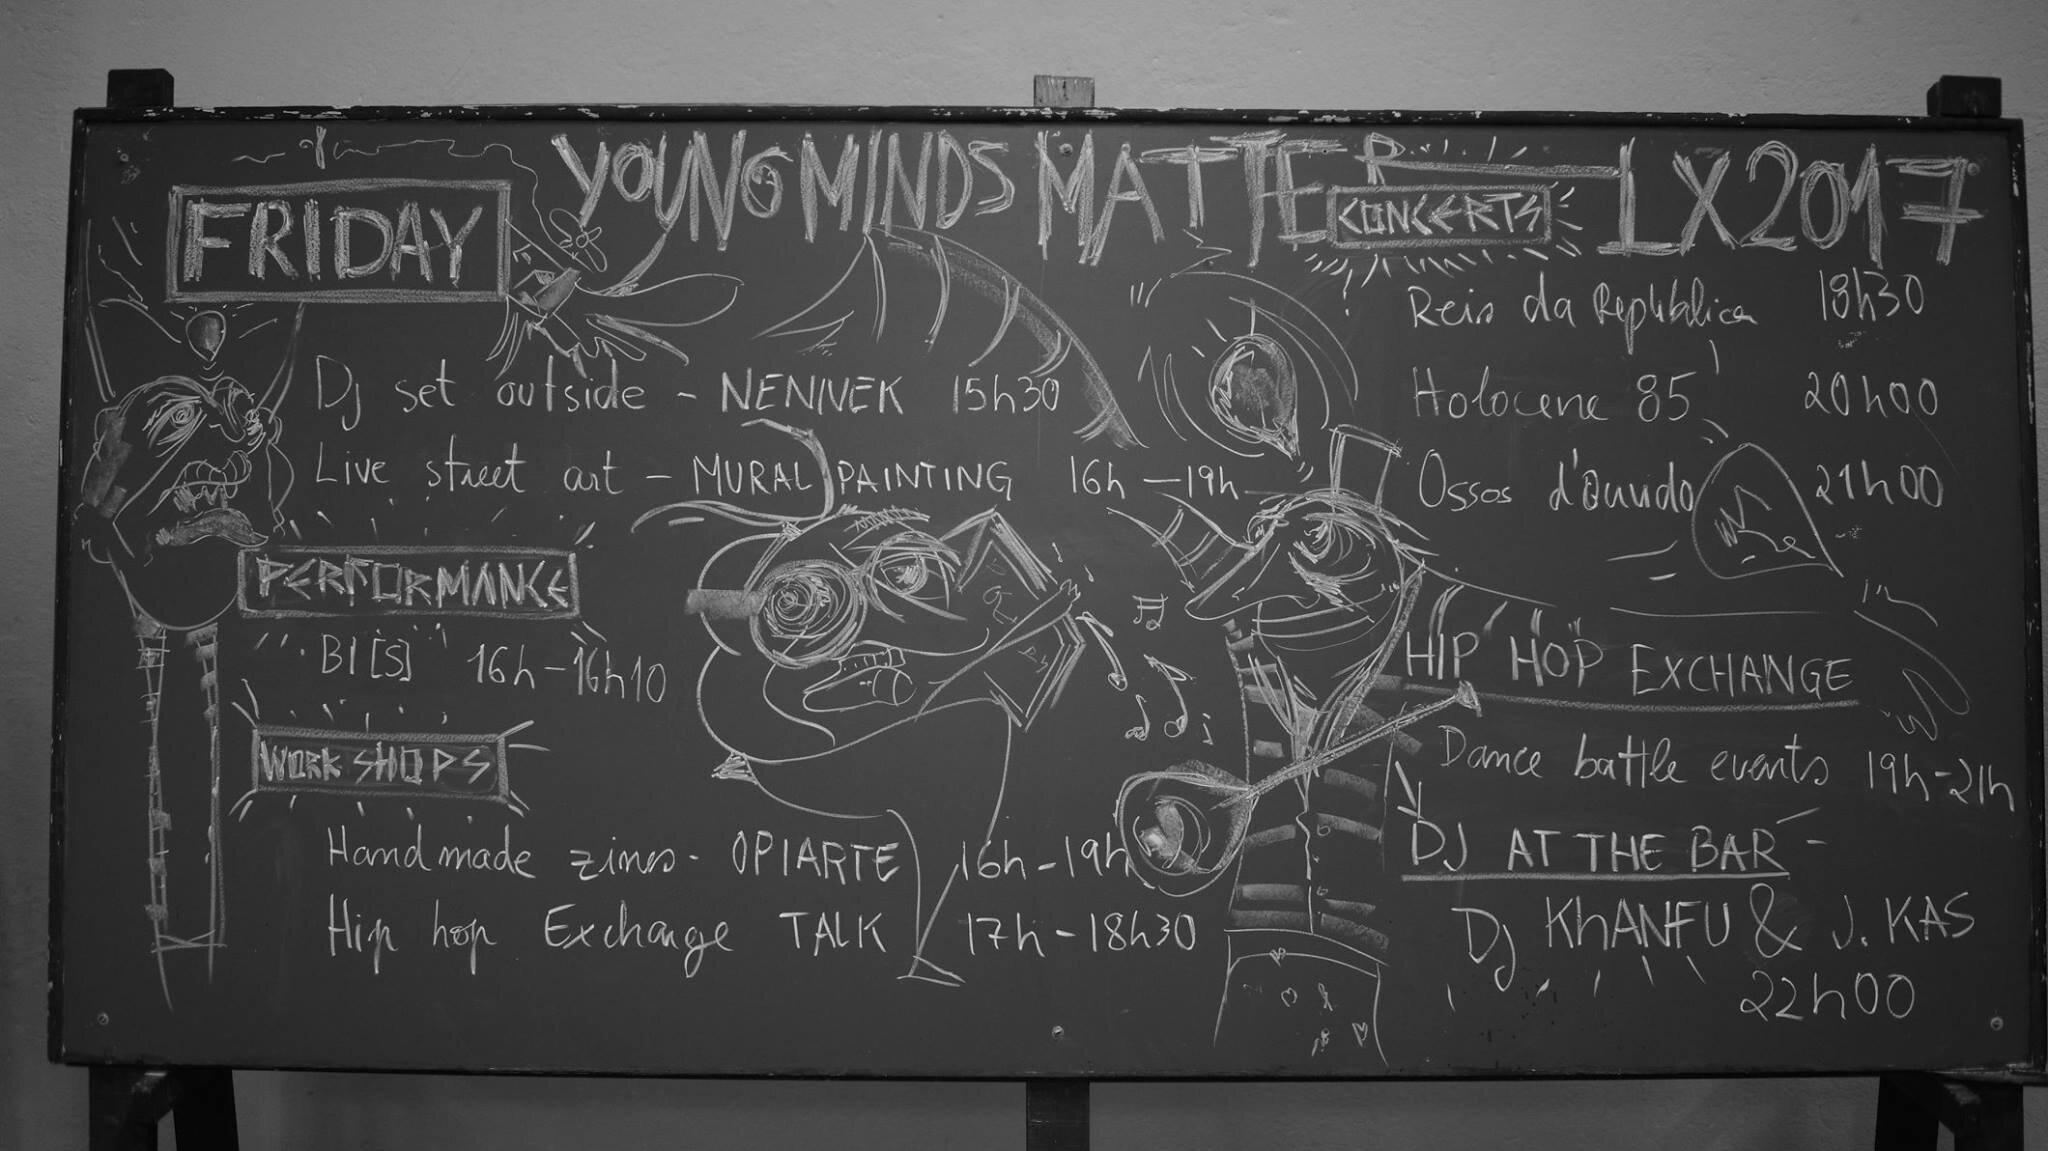 YOUNG MINDS MATTER LX2017
FRIDAY
Dj set outside - NENIVEK 15h30
Live street art - MURAL PAINTING 16h - 19h
PERFORMANCE
BI[S] 16h - 16h10
WORKSHOPS
Handmade zines - OPIARTE 16h - 19h
Hip hop Exchange TALK 17h - 18h30
CONCERTS
Reis da República 18h30
Holocene 85 20h00
Ossos d'ouvido 21h00
HIP HOP EXCHANGE
Dance battle events 19h - 21h
DJ AT THE BAR -
Dj KhANFU & J. KAS
22h00